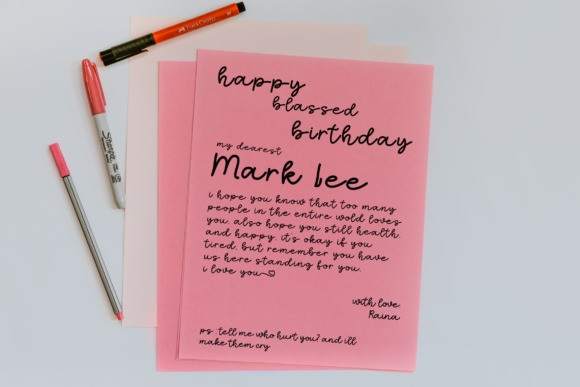 Faber-Castell
Sharpie
happy
blassed
birthday
my dearest
Mark lee
i hope you know that too many
people in the entire wold loves
you. also hope you still health.
and happy. it's okay if you
tired. but remember you have
us here standing for you.
i love you
with love,
Raina
ps :tell me who hurt you? and ill
make them cry